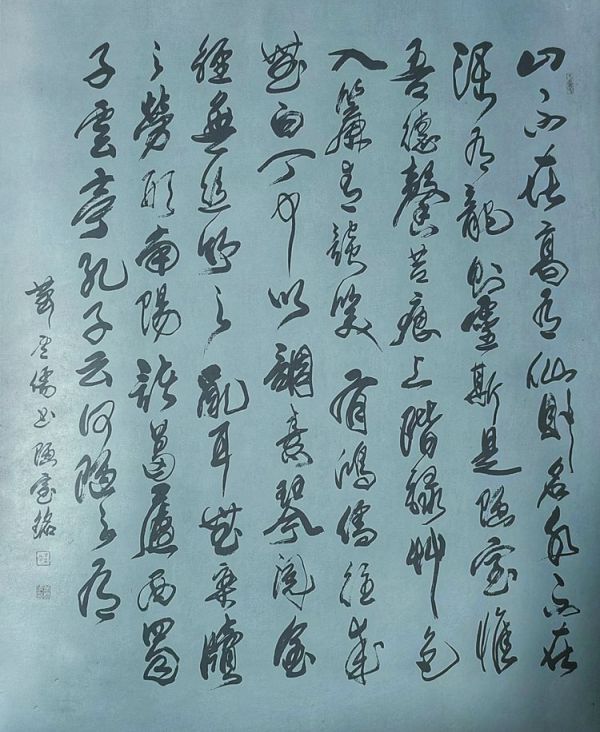 山不在高有仙則名水不在
深有龍則靈斯是陋室惟
吾德馨苔痕上階綠艸色
入簾青談笑有鴻儒往來
無白丁可以調素琴閱金
經無絲竹之亂耳無案牘
之勞形南陽諸葛廬西蜀
子雲亭孔子云何陋之有
儒书陋室銘